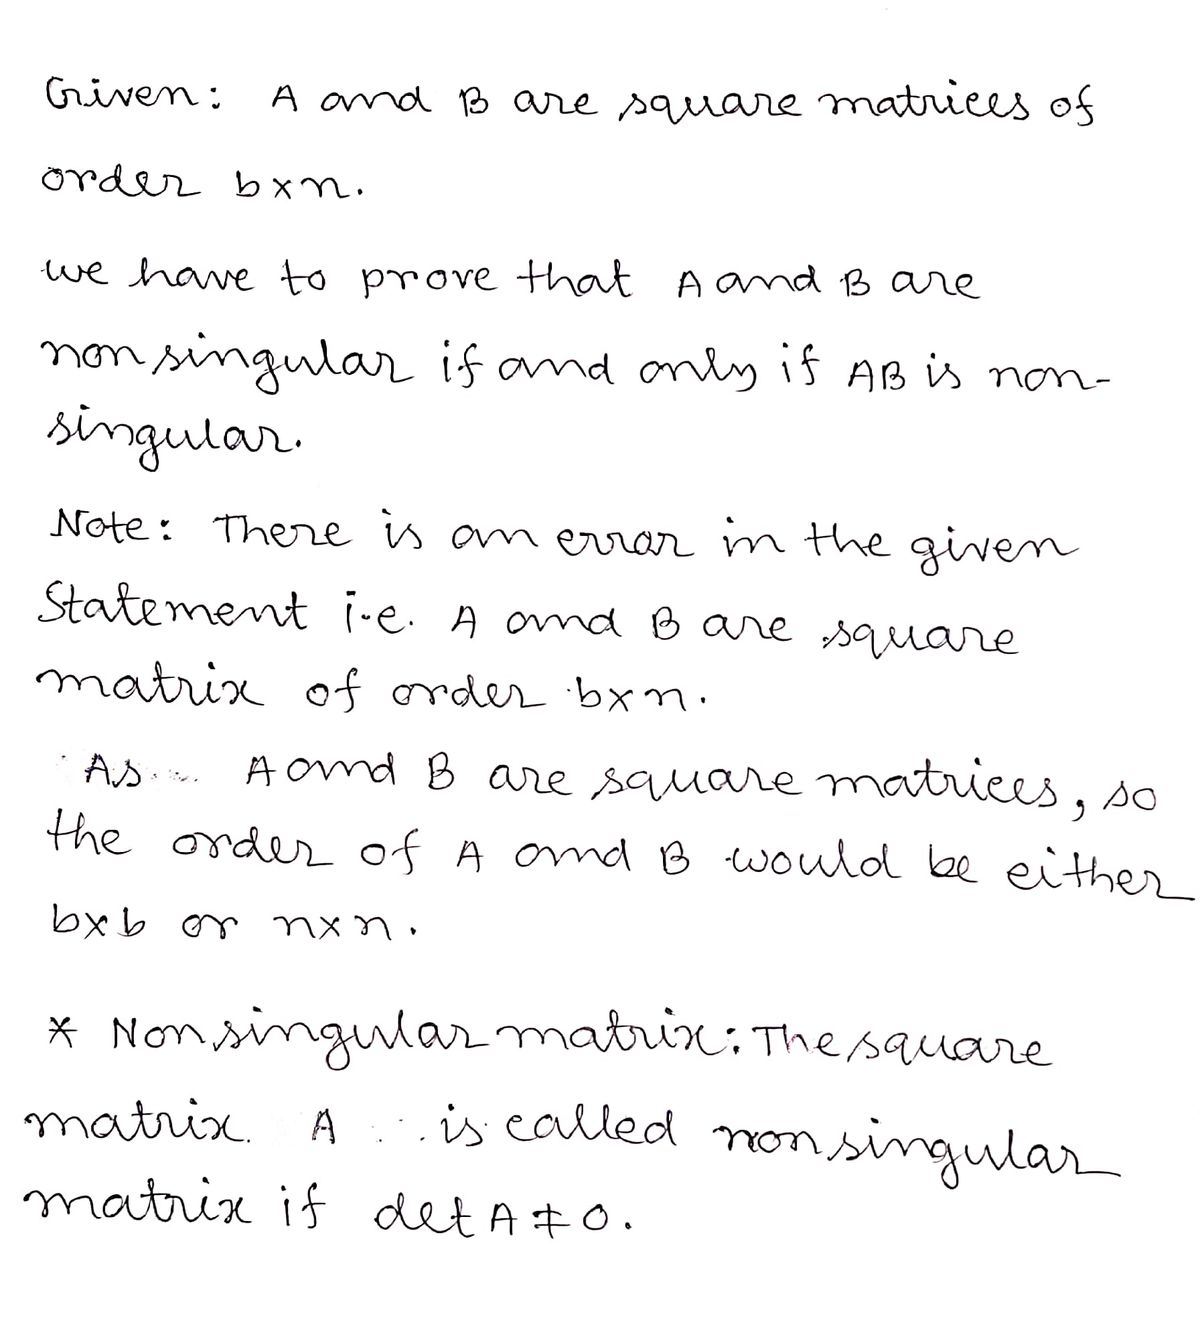 Given: A and B are square matrices of
order b×n.
we have to prove that A and B are
nonsingular if and only if AB is non-
singular.
Note: There is an error in the given
Statement i.e. A and B are square
matrix of order b×n.
As A and B are square matrices, so
the order of A and B would be either
b×b or n×n.
* Nonsingular matrix: The square
matrix A is called nonsingular
matrix if det A ≠ 0.